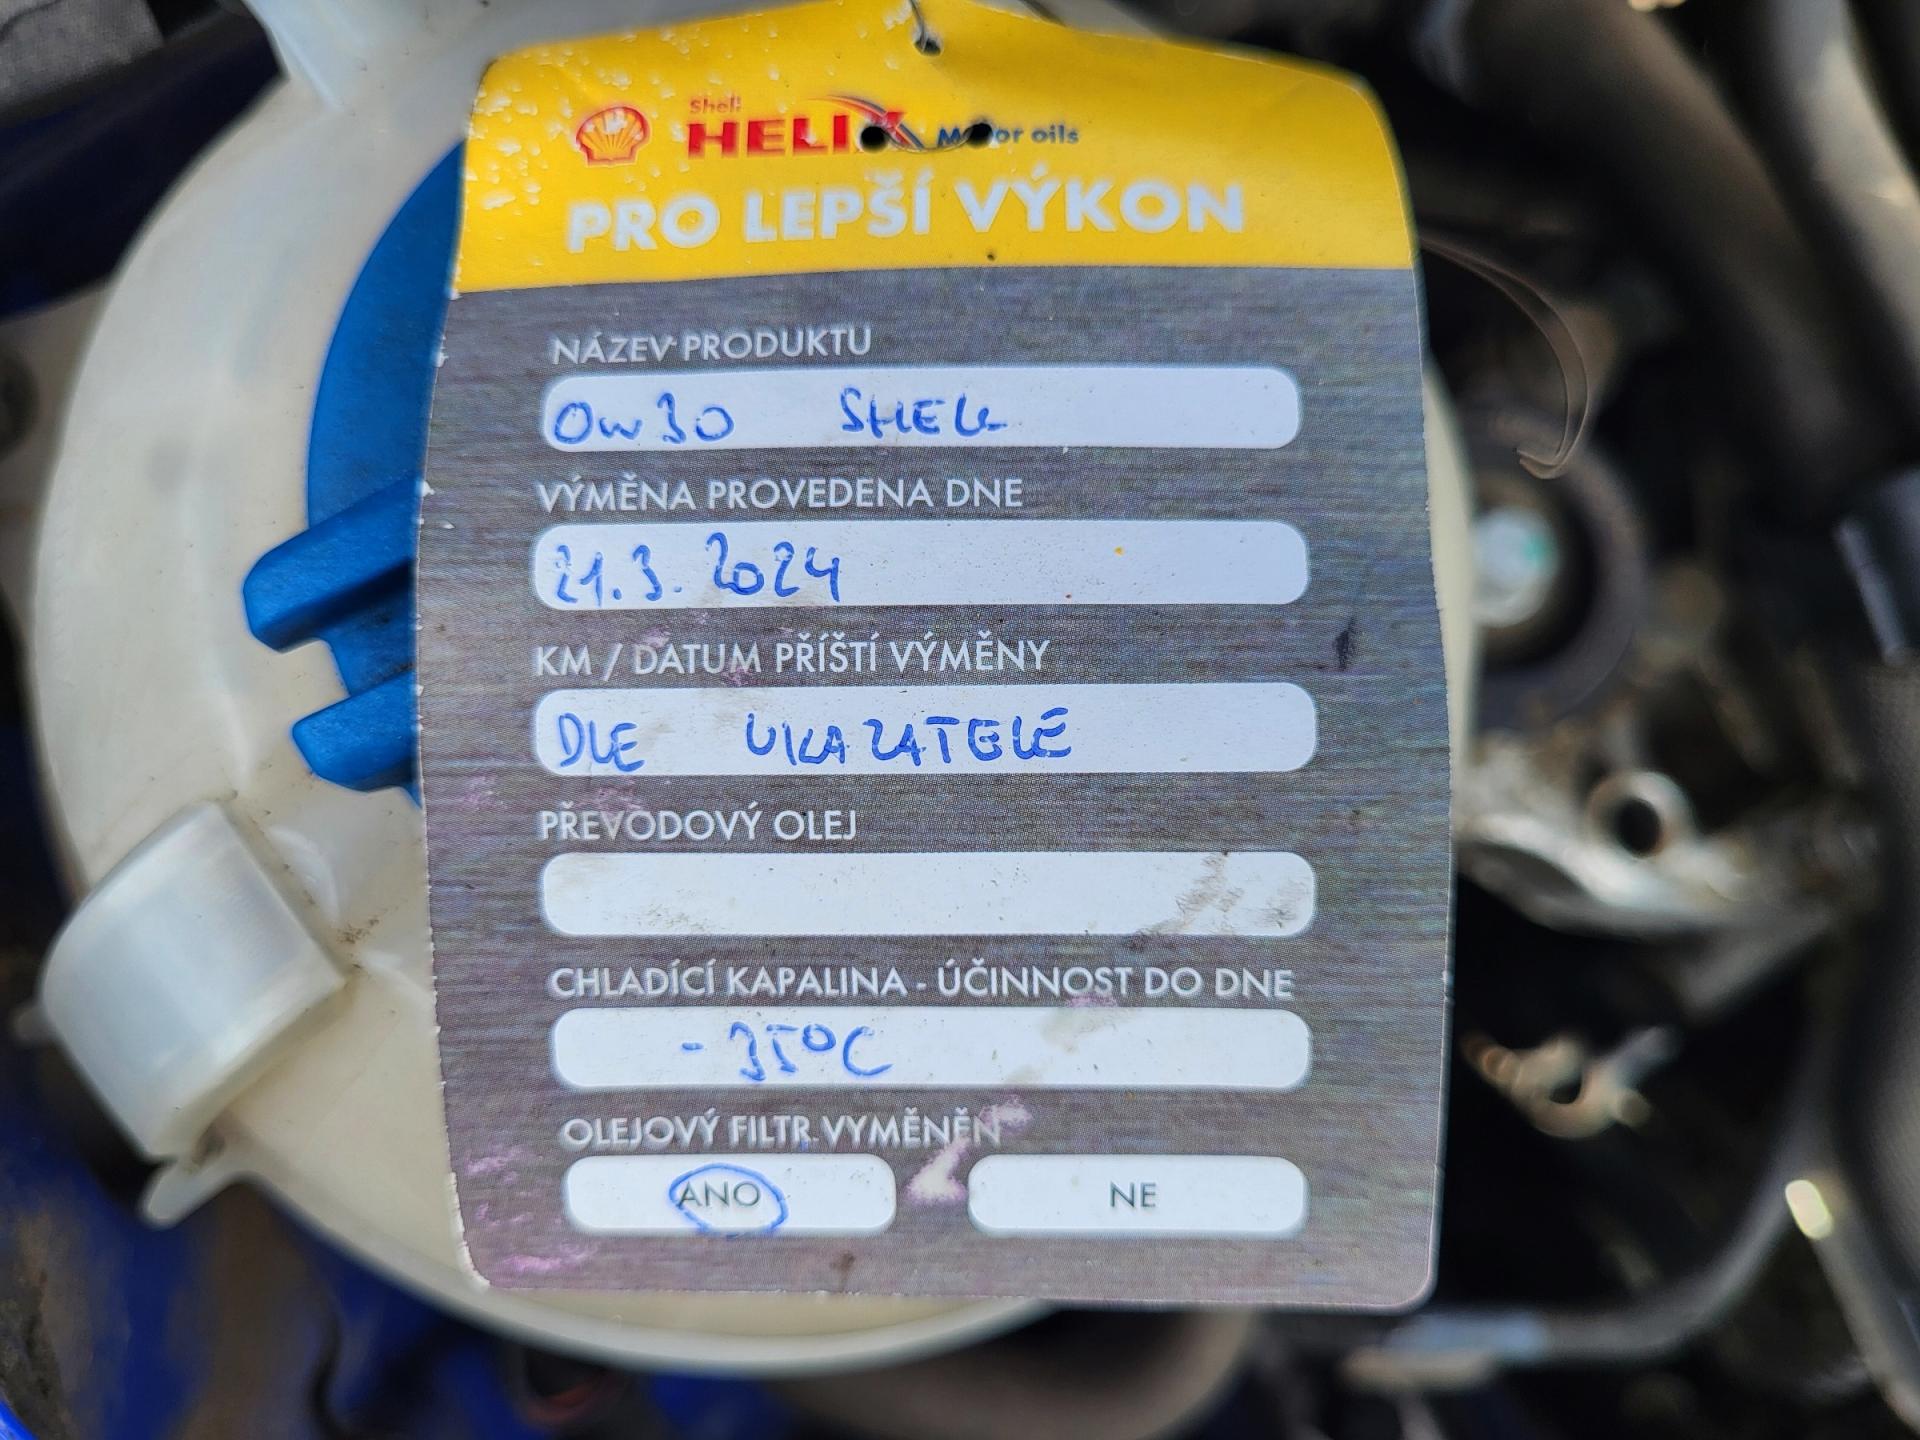 Shell
HELIX Motor oils
PRO LEPŠÍ VÝKON
NÁZEV PRODUKTU
0w30 SHELL
VÝMĚNA PROVEDENA DNE
21.3.2024
KM / DATUM PŘÍŠTÍ VÝMĚNY
DLE UKAZATELE
PŘEVODOVÝ OLEJ
CHLADÍCÍ KAPALINA - ÚČINNOST DO DNE
-35°C
OLEJOVÝ FILTR VYMĚNĚN
ANO NE